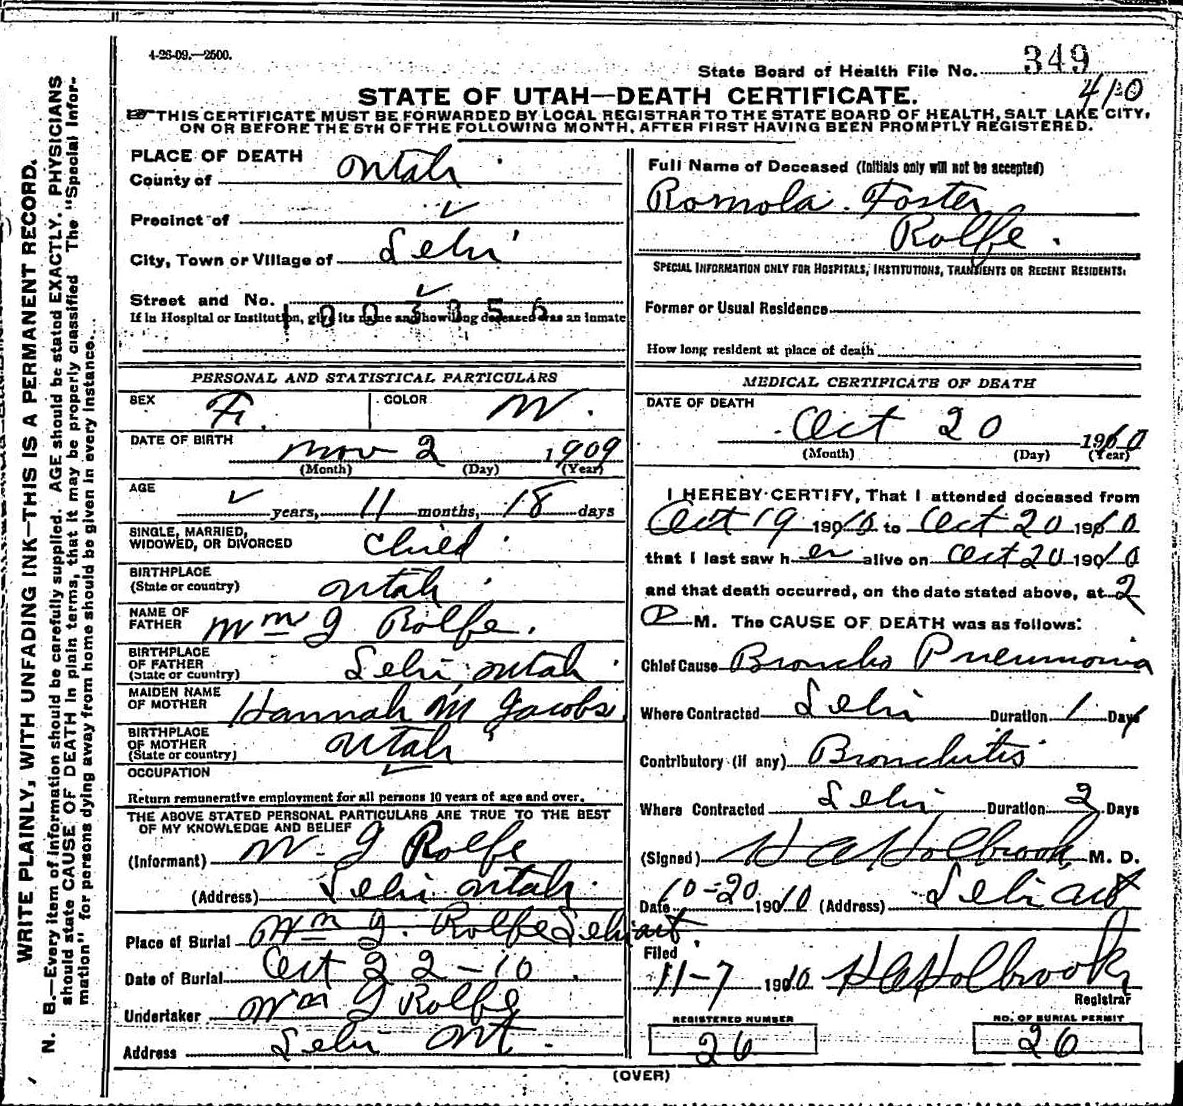 4-26-09.—2500.
State Board of Health File No. 349
410
STATE OF UTAH—DEATH CERTIFICATE.
THIS CERTIFICATE MUST BE FORWARDED BY LOCAL REGISTRAR TO THE STATE BOARD OF HEALTH, SALT LAKE CITY,
ON OR BEFORE THE 5TH OF THE FOLLOWING MONTH, AFTER FIRST HAVING BEEN PROMPTLY REGISTERED.
WRITE PLAINLY, WITH UNFADING INK—THIS IS A PERMANENT RECORD.
N. B.—Every item of information should be carefully supplied. AGE should be stated EXACTLY. PHYSICIANS
should state CAUSE OF DEATH in plain terms, that it may be properly classified The "Special Infor-
mation" for persons dying away from home should be given in every instance.
PLACE OF DEATH
County of Utah
Precinct of ✓
City, Town or Village of Lehi
Street and No. ✓
1003356
If in Hospital or Institution, give its name and how long deceased was an inmate
PERSONAL AND STATISTICAL PARTICULARS
SEX F. COLOR W.
DATE OF BIRTH
Nov 2 1909
(Month) (Day) (Year)
AGE
✓ years, 11 months, 18 days
SINGLE, MARRIED,
WIDOWED, OR DIVORCED Child
BIRTHPLACE
(State or country) Utah
NAME OF
FATHER Wm G Rolfe.
BIRTHPLACE
OF FATHER
(State or country) Lehi Utah
MAIDEN NAME
OF MOTHER Hannah M Jacobs
BIRTHPLACE
OF MOTHER
(State or country) Utah
OCCUPATION ✓
Return remunerative employment for all persons 10 years of age and over.
THE ABOVE STATED PERSONAL PARTICULARS ARE TRUE TO THE BEST
OF MY KNOWLEDGE AND BELIEF
(Informant) W. G Rolfe
(Address) Lehi Utah
Place of Burial Wm G. Rolfe Lehi Ut
Date of Burial Oct 22-10
Undertaker Wm G Rolfe
Address Lehi Ut.
Full Name of Deceased (Initials only will not be accepted)
Romola Foster
Rolfe.
SPECIAL INFORMATION ONLY FOR HOSPITALS, INSTITUTIONS, TRANSIENTS OR RECENT RESIDENTS.
Former or Usual Residence
How long resident at place of death
MEDICAL CERTIFICATE OF DEATH
DATE OF DEATH
Oct 20 1910
(Month) (Day) (Year)
I HEREBY CERTIFY, That I attended deceased from
Oct 19 1910 to Oct 20 1910
that I last saw her alive on Oct 20 1910
and that death occurred, on the date stated above, at 2
P M. The CAUSE OF DEATH was as follows:
Chief Cause Broncho Pneumonia
Where Contracted Lehi Duration 1 Day
Contributory (if any) Bronchitis
Where Contracted Lehi Duration 2 Days
(Signed) H A Holbrook M. D.
Date 10-20 1910 (Address) Lehi Ut
Filed
11-7 1910 HA Holbrook
Registrar
REGISTERED NUMBER
26
NO. OF BURIAL PERMIT
26
(OVER)